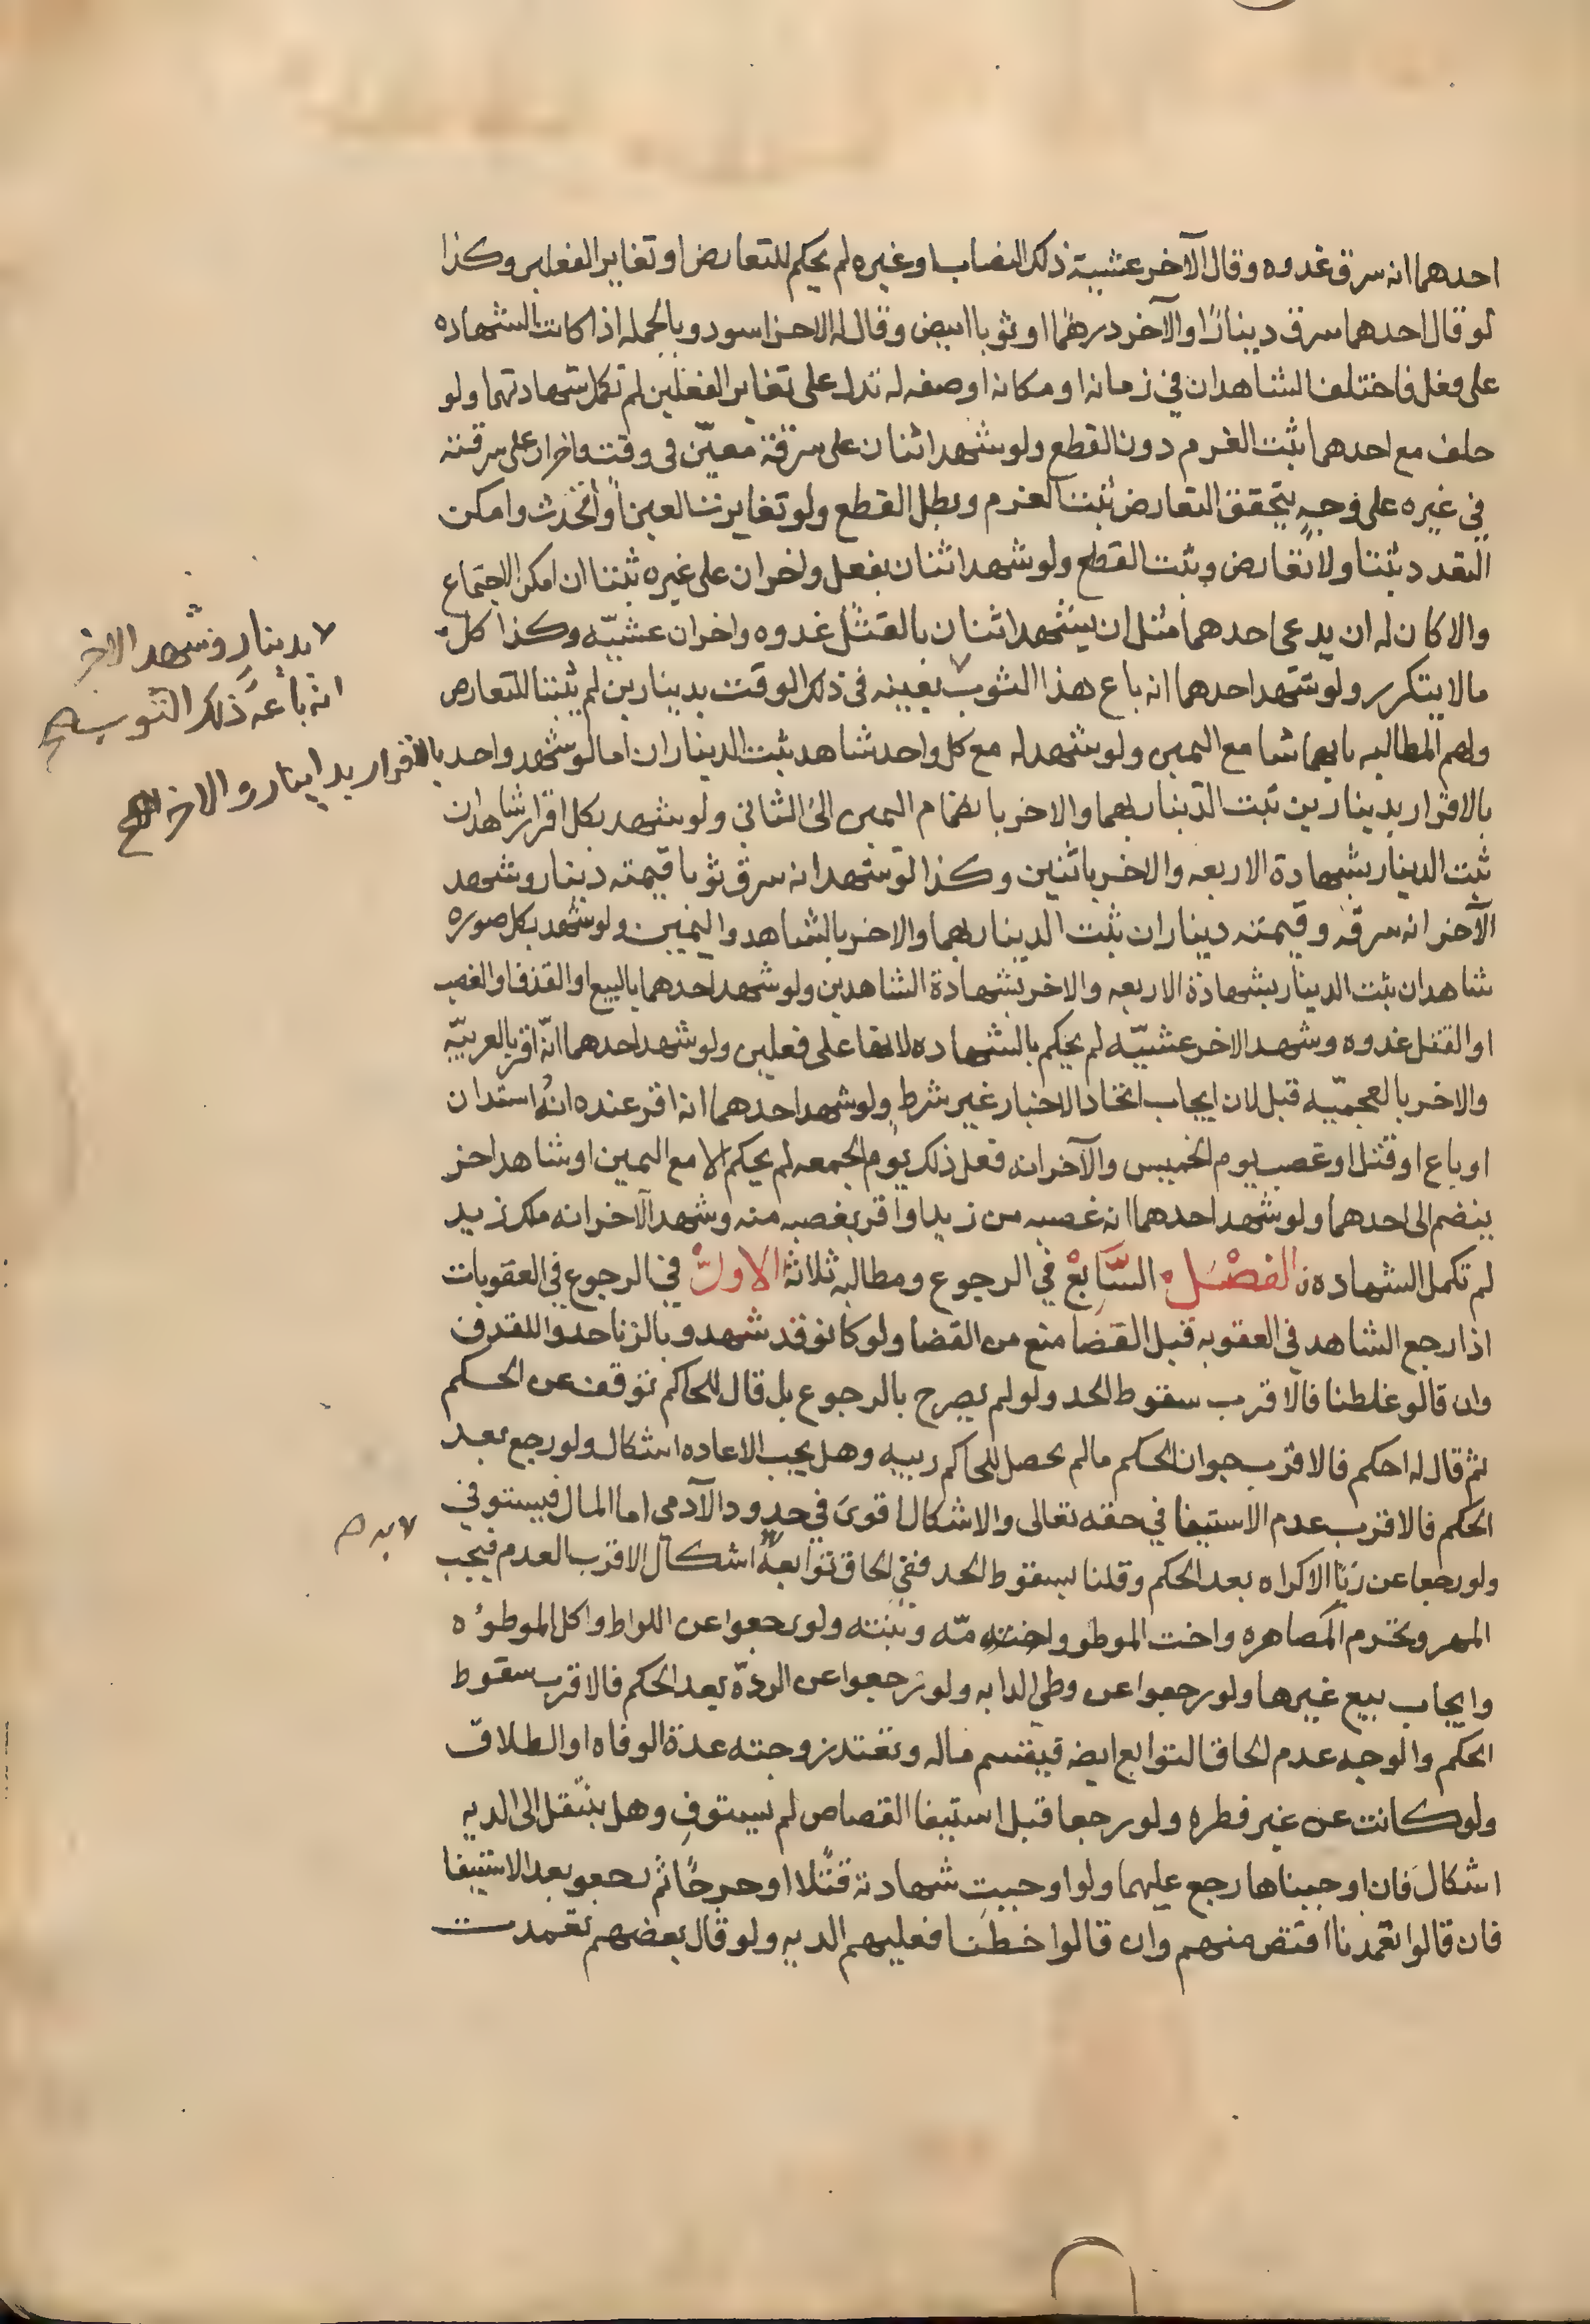 احدهما انه سرق غدوه وقال الآخر عشية ذلك النصاب او غيره لم يحكم للتعارض او تغاير الفعلين وكذا
لو قال احدهما سرق دينارًا والآخر درهمًا او ثوبا ابيض وقال له الاخر اسود وبالجمله اذا كانت الشهاده
على فعل فاختلف الشاهدان في زمانه او مكانه او صفه له تدل على تغاير الفعلين لم تكمل شهادتهما ولو
حلف مع احدهما ثبت الغرم دون القطع ولو شهد اثنان على سرقة معيّن في وقت واخران على سرقته
في غيره على وجهٍ يتحقق التعارض ثبت الغرم وبطل القطع ولو تغايرت العين او اتحدت وامكن
التعدد ثبتتا ولا تعارض وثبت القطع ولو شهد اثنان بفعل واخران على غيره ثبتتا ان امكن الاجتماع
والا كان له ان يدعى احدهما مثل ان يشهد اثنان بالقتل غدوه واخران عشيّه وكذا كل
مالا يتكرر ولو شهد احدهما انه باع هذا الثوب بعينه في ذلك الوقت بدينارين لم يثبتا للتعارض
بدينار وشهد الاخر
انه باعه ذلك الثوب صح
ولهم المطالبه بايهما شا مع اليمين ولو شهد له مع كل واحد شاهد ثبت الديناران اما لو شهد واحد بالاقرار بدينار والاخر صح
بالاقرار بدينارين ثبت الدينار بهما والاخر بانضمام اليمين الى الثاني ولو شهد بكل اقرار شاهدان
ثبت الدينار بشهادة الاربعه والاخر باثنين وكذا لو شهد انه سرق ثوبا قيمته دينار وشهد
الآخر انه سرقه وقيمته ديناران ثبت الدينار بهما والاخر بالشاهد واليمين ولو شهد بكل صوره
شاهدان ثبت الدينار بشهادة الاربعه والاخر بشهادة الشاهدين ولو شهد احدهما بالبيع او القذف او الغصب
او القتل غدوه وشهد الاخر عشيّه لم يحكم بالشهاده لانها على فعلين ولو شهد احدهما انّه اقر بالعربيّه
والاخر بالعجميّه قبل لان ايجاب اتحاد الاخبار غير شرط ولو شهد احدهما انه اقر عنده انه استدان
او باع او قتل او غصب يوم الخميس والآخر انه فعل ذلك يوم الجمعه لم يحكم الا مع اليمين او شاهد اخر
ينضم الى احدهما ولو شهد احدهما انه غصبه من زيد او اقر بغصبه منه وشهد الآخر انه ملك زيد
لم تكمل الشهاده الفصل السَّابع في الرجوع ومطالبه ثلاثة الاول في الرجوع في العقوبات
اذا رجع الشاهد في العقوبه قبل القضا منع من القضا ولو كانو قد شهدو بالزنا حدوا للقذف
وان قالو غلطنا فالاقرب سقوط الحد ولو لم يصرح بالرجوع بل قال للحاكم توقف عن الحكم
ثم قال له احكم فالاقرب جوان الحكم مالم يحصل للحاكم ريبيه وهل يجب الاعاده اشكال ولو رجع بعد
الحكم فالاقرب عدم الاستيفا في حقه تعالى والاشكال اقوى في حدود الآدمى اما المال فيستوفي
ولو رجعا عن زنا الاكراه بعد الحكم وقلنا بسقوط الحد ففي الحاق توابعه اشكال الاقرب العدم فيجب
المهر وتحرم المصاهره واخت الموطو وامّه وبنته ولو رجعوا عن اللواط واكل الموطؤه
وايجاب بيع غيرها ولو رجعوا عن وطي الدابه ولو رجعوا عن الردّه بعد الحكم فالاقرب سقوط
الحكم والوجه عدم الحاق التوابع ايضه فيقتسم ماله وتعتد زوجته عدة الوفاه او الطلاق
ولو كانت عن غير فطره ولو رجعا قبل استيفا القصاص لم يستوف وهل ينتقل الى الديه
اشكال فان اوجبناها رجع عليهما ولو اوجبت شهادته قتلا او جرحًا ثم رجعو بعد الاستيفا
فان قالوا تعمدنا اقتص منهم وان قالوا خطئنا فعليهم الديه ولو قال بعضهم تعمدت